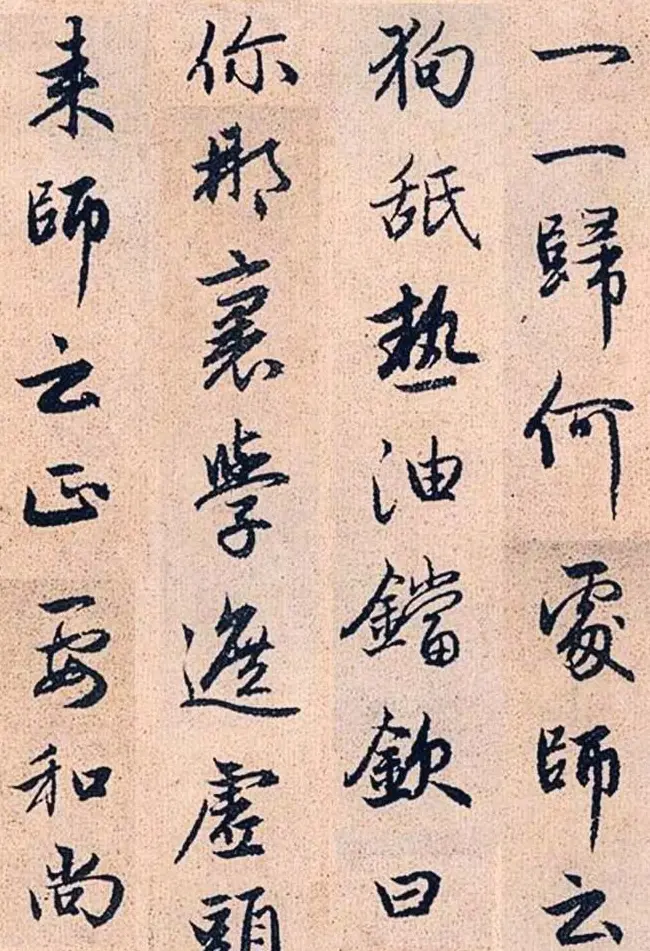 一一歸何處師云
狗舐熱油鐺欽曰
你那裏學遮虛頭
來師云正要和尚